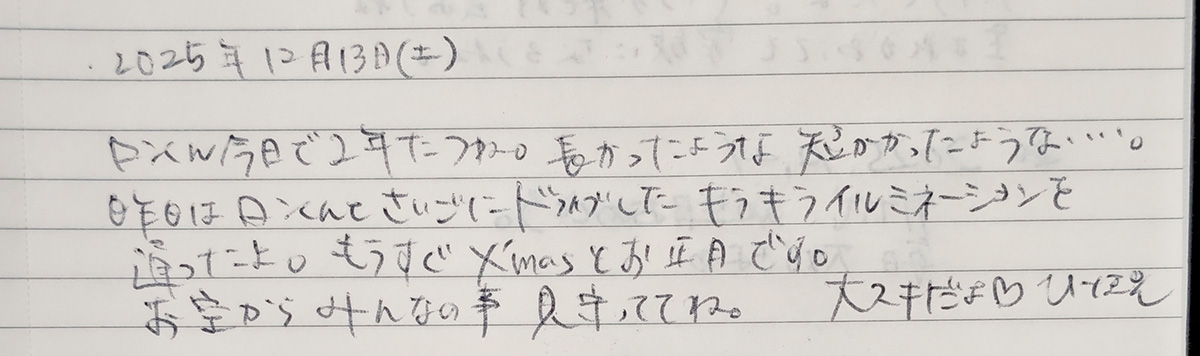 2025年12月13日(土)
ロンくん今日で2年たつね。長かったような短かかったような…。
昨日はロンくんとさいごにドライブしたキラキライルミネーションを
通ったよ。もうすぐX'masとお正月です。
お空からみんなの事見守っててね。 大スキだよ♡